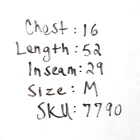 Chest: 16
Length: 52
Inseam: 29
Size: M
SKU: 7790